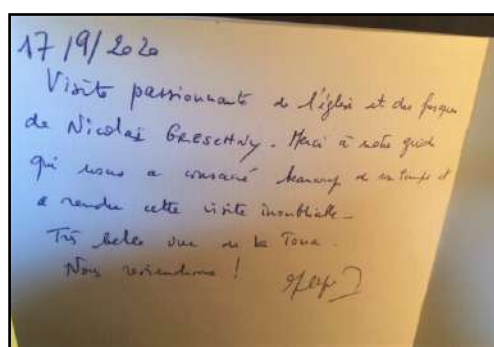 17/9/2020
Visite passionnante de l'église et des fresques
de Nicolaï GRESCHNY. Merci à notre guide
qui nous a consacré beaucoup de son temps et
a rendu cette visite inoubliable.
Très belle vue de la Tour.
Nous reviendrons !